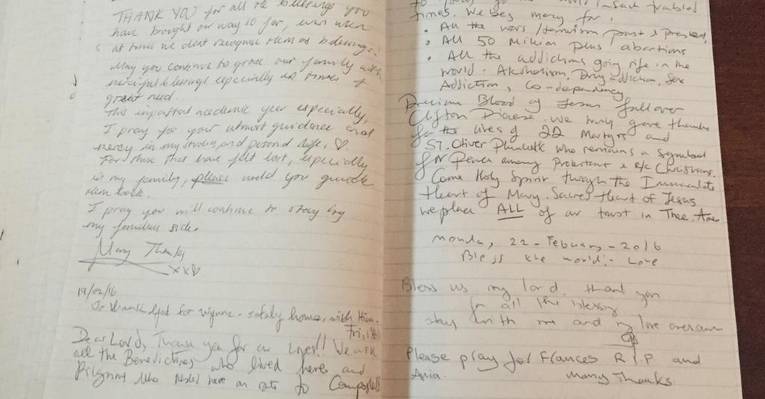 THANK YOU for all the blessings you
have brought our way so far, even when
at times we dont recognise them as blessings.
May you continue to grace our family with
merciful blessings especially at times of
great need.
This important academic year especially,
I pray for your utmost guidance and
mercy in my studies and personal life. ♡
For those that have felt lost, especially
in my family, please would you guide
them back.
I pray you will continue to stay by
my families side.
Many Thanks
xx♡
19/02/16
safely home, with Him.
Dear Lord, Thank you for our lives!! We ask
all the Benedictines who lived here and
Pilgrims who rested here en route to
troubled
times. We beg mercy for,
• All the wars / terrorism past & present,
• All 50 Million plus abortions
• All the addictions going rife in the
world. Alcoholism, Drug addiction, Sex
Addiction, Co-dependency.
Precious Blood of Jesus fall over
Clifton Diocese. We truly give thanks
for the lives of 22 Martyrs and
ST. Oliver Plunkett who remains a symbol
for Peace among Protestant & R/C Christians.
Come Holy Spirit through the Immaculate
Heart of Mary. Sacred Heart of Jesus
we place ALL of our trust in Thee.
Monday, 22 - February - 2016
Bless the world! - Love
Bless us my lord. thank you
for all the blessing
stay with me and my love
Please pray for Frances R.I.P and
Many Thanks